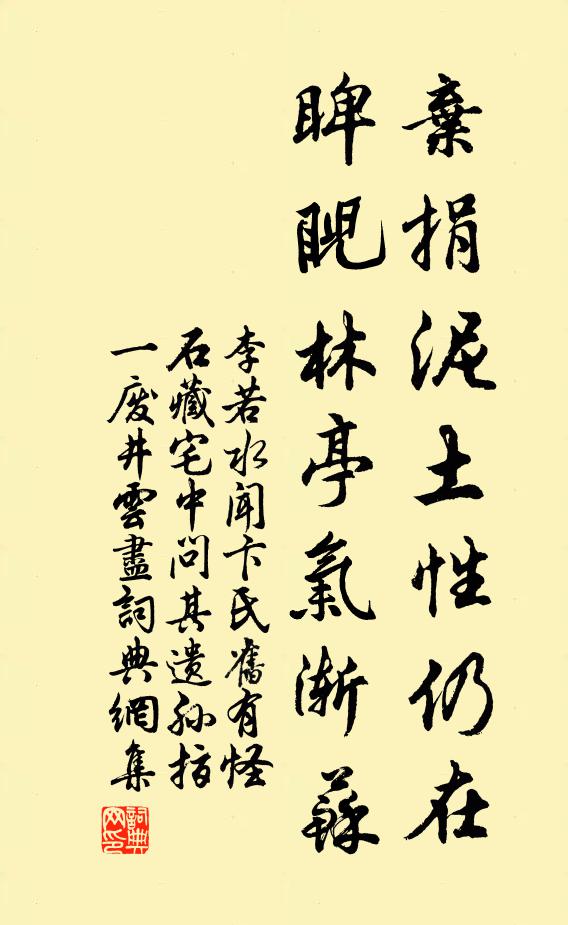 棄捐泥土性仍在
睥睨林亭氣漸蘇
李若水聞卞氏舊有怪
石藏宅中問其遺孫指
一废井雲盡詞典網集
詞典
网